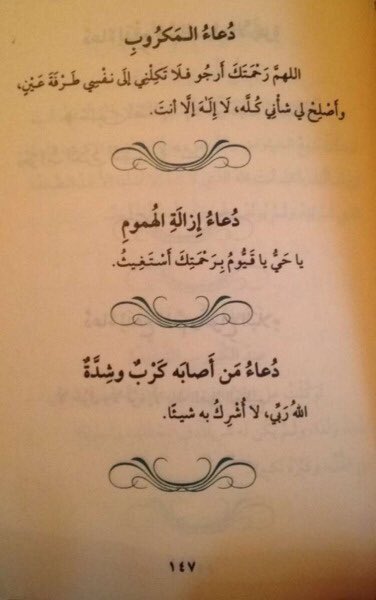 دُعاءُ الـمَكرُوبِ
اللهمَّ رَحْمَتَكَ أَرجُو فلَا تَكِلْنِي إلى نَفْسِي طَرْفَةَ عَيْنٍ،
وأَصْلِحْ لي شأنِي كُلَّه، لَا إِلَهَ إلَّا أنتَ.
دُعاءُ إزالَةِ الهُمومِ
يا حَيُّ يا قَيُّومُ بِرَحْمَتِكَ أَسْتَغِيثُ.
دُعاءُ مَن أَصابَه كَرْبٌ وشِدَّةٌ
اللهُ رَبِّي، لا أُشْرِكُ به شيئًا.
١٤٧